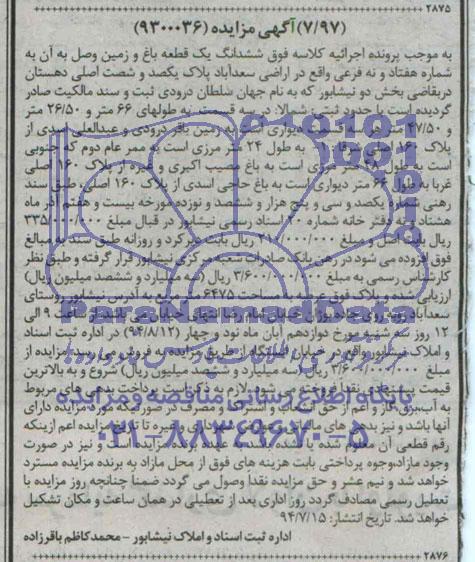 ۲۸۷۵
(۷/۹۷) آگهی مزایده (۹۳۰۰۰۳۶)
به موجب پرونده اجرائیه کلاسه فوق ششدانگ یک قطعه باغ و زمین وصل به آن به
شماره هفتاد و نه فرعی واقع در اراضی سعدآباد پلاک یکصد و شصت اصلی دهستان
دربقاضی بخش دو نیشابور که به نام جهان سلطان درودی ثبت و سند مالکیت صادر
گردیده است با حدود ثبتی: شمالا: در سه قسمت، به طولهای ۶۶ متر و ۲۶/۵۰ متر
و ۴۷/۵۰ متر هر سه قسمت دیواری است به زمین باقر درودی و عبدالعلی اسدی از
پلاک ۱۶۰ اصلی شرقا: به طول ۲۴ متر مرزی است به ممر عام دوم که جنوبی
است به طول متر مرزی است به باغ مصیب اکبری و غیره از پلاک ۱۶۰ اصلی
غربا به طول ۶۶ متر دیواری است به باغ حاجی اسدی از پلاک ۱۶۰ اصلی، طبق سند
رهنی شماره یکصد و سی و پنج هزار و ششصد و نوزده مورخه بیست و هفتم آذر ماه
هشتاد و نه دفتر خانه شماره اسناد رسمی نیشابور در قبال مبلغ ۳۳۵/۰۰۰/۰۰۰
ریال بابت اصل و مبلغ ریال بابت دیرکرد و روزانه طبق سند به مبالغ
فوق افزوده می شود در رهن بانک صادرات شعبه مرکزی نیشابور قرار گرفته و طبق نظر
کارشناس رسمی به مبلغ ۳/۶۰۰/۰۰۰/۰۰۰ ریال (سه میلیارد و ششصد میلیون ریال)
ارزیابی شده و پلاک فوق عرصه به مساحت ۶۴۷۵ متر مربع به آدرس نیشابور روستای
سعدآباد خیابان امام رضا انتهای خیابان می باشد از ساعت ۹ الی
۱۲ روز سه شنبه مورخ دوازدهم آبان ماه نود و چهار (۹۴/۸/۱۲) در اداره ثبت اسناد
و املاک نیشابور واقع در خیابان از طریق مزایده به فروش می رسد مزایده از
مبلغ ۳/۶۰۰/۰۰۰/۰۰۰ ریال (سه میلیارد و ششصد میلیون ریال) شروع و به بالاترین
قیمت پیشنهادی نقدا فروخته می شود لازم به ذکر است پرداخت بدهی های مربوط
به آب، برق، گاز و اعم از حق انشعاب و اشتراک و مصرف در صورتی که مورد مزایده دارای
آنها باشد و نیز بدهی های مالیاتی و عوارض شهرداری و غیره تا تاریخ مزایده اعم از اینکه
رقم قطعی آن معلوم شده یا نشده باشد به عهده برنده مزایده است و نیز در صورت
وجود مازاد، وجوه پرداختی بابت هزینه های فوق از محل مازاد به برنده مزایده مسترد
خواهد شد و نیم عشر و حق مزایده نقدا وصول می گردد ضمنا چنانچه روز مزایده با
تعطیل رسمی مصادف گردد روز اداری بعد از تعطیلی در همان ساعت و مکان تشکیل
خواهد شد. تاریخ انتشار: ۹۴/۷/۱۵
اداره ثبت اسناد و املاک نیشابور - محمدکاظم باقرزاده
۲۸۷۶
ParsNamadData
پایگاه اطلاع رسانی مناقصه و مزایده
۰۲۱-۸۸۳۴۹۶۷۰-۵